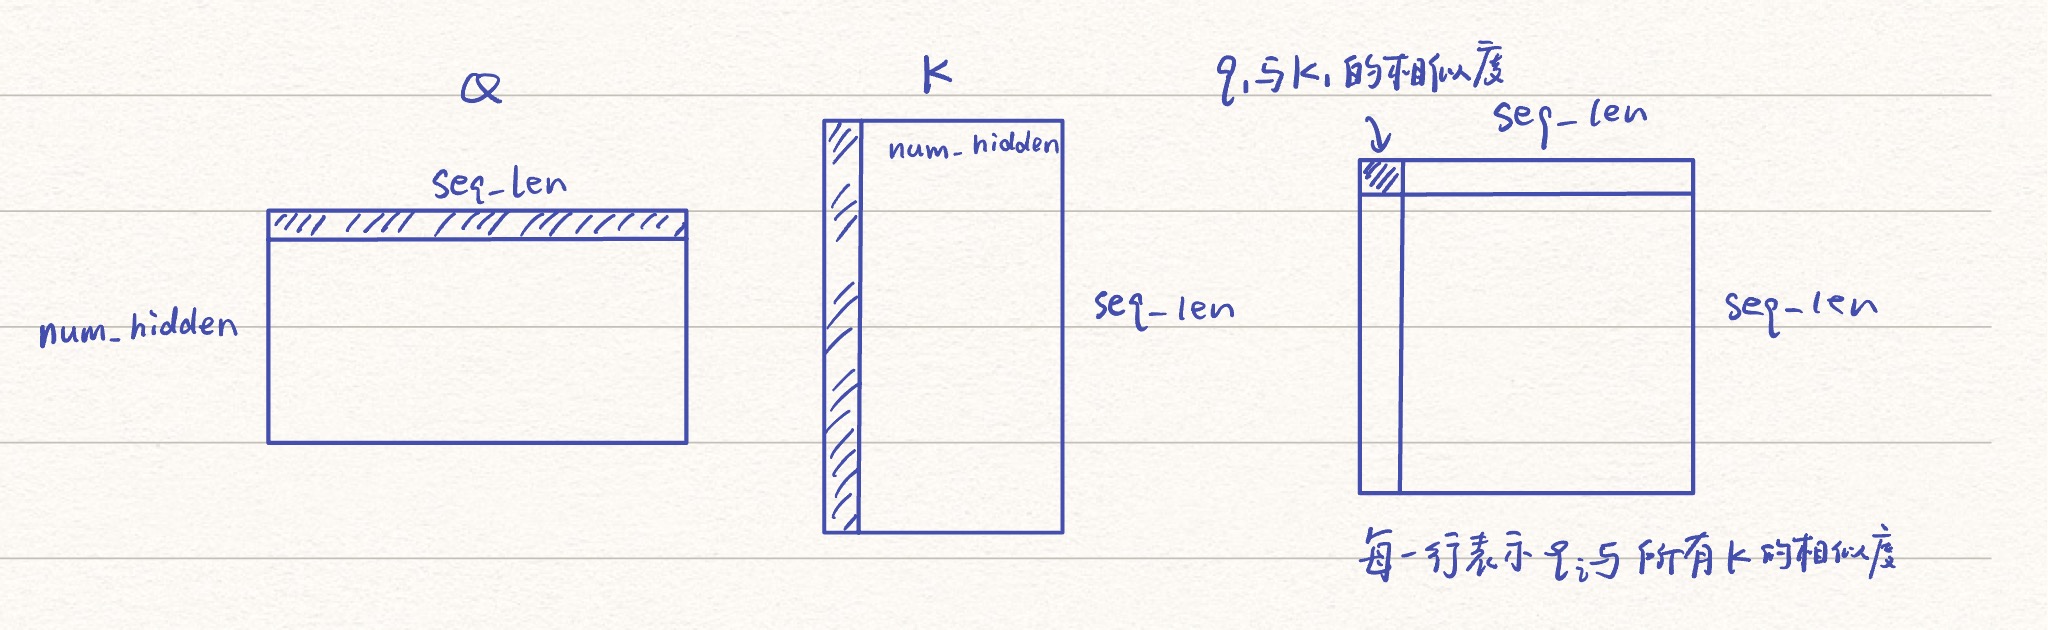 Q
seq_len
num_hidden
K
num_hidden
seq_len
q₁与K₁的相似度
seq_len
seq_len
每一行表示qᵢ与所有K的相似度